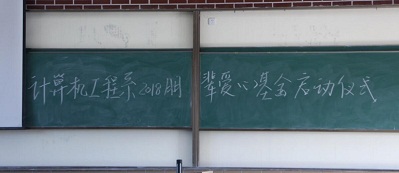 计算机工程系2018朋辈爱心基金启动仪式